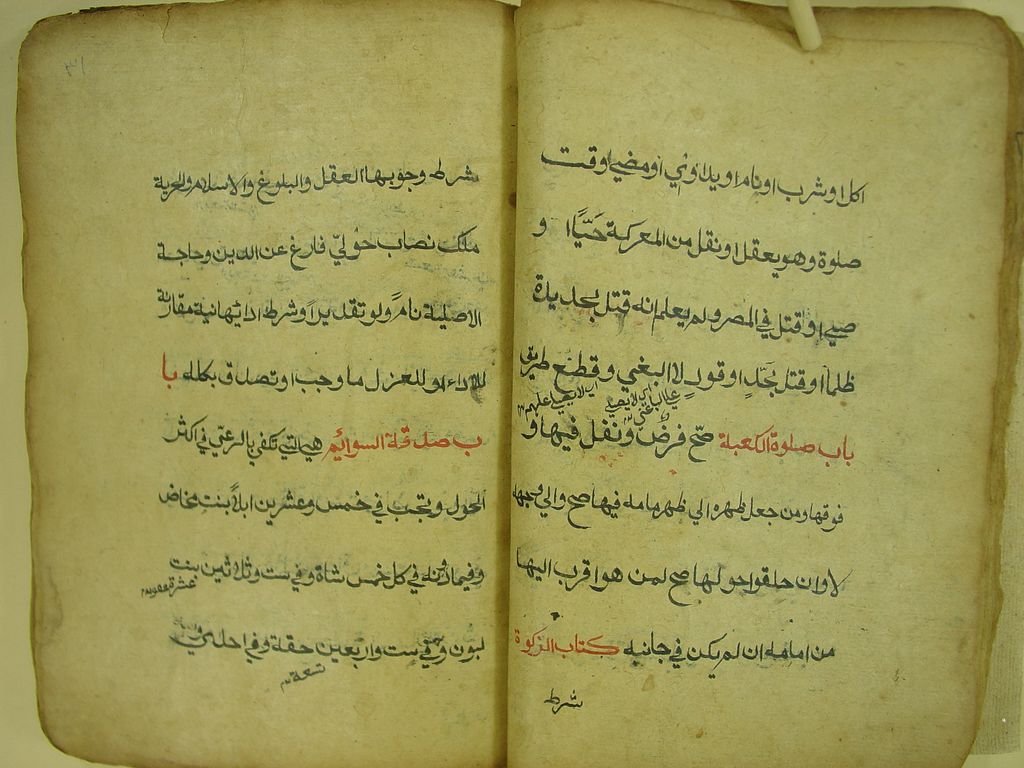 اكل او شرب او نام او يداوي او مضي اوقت
صلوة وهو يعقل او نقل من المعركة حَيًّا او
صبي او قتل في المصر ولم يعلم انه قتل بحديدة
ظلما او قتل بحَدٍ او قودٍ لا البغي وقطع طريق
باب صلوة الكعبة صح فرض ونفل فيها و
فوقها ومن جعل ظهره الي ظهر امامه فيها صح والي وجهه
لا وان حلقوا حولها صح لمن هو اقرب اليها
من امامه ان لم يكن في جانبه كتاب الزكوة
شرط
٣١
شرط وجوبها العقل والبلوغ والاسلام والحرية
ملك نصاب حولي فارغ عن الدين وحاجة
الاصلية نامٍ ولو تقديرا وشرط ادائها نية مقارنة
للاداء او للعزل ما وجب او تصدق بكله با
ب صدقة السوائم هي التي تكفي بالرعي في اكثر
الحول وتجب في خمس وعشرين ابلاً بنت مخاض
وفيما دونه في كل خمس شاة وفي ست وثلاثين بنت
لبون وفي ست واربعين حقة وفي احدي و